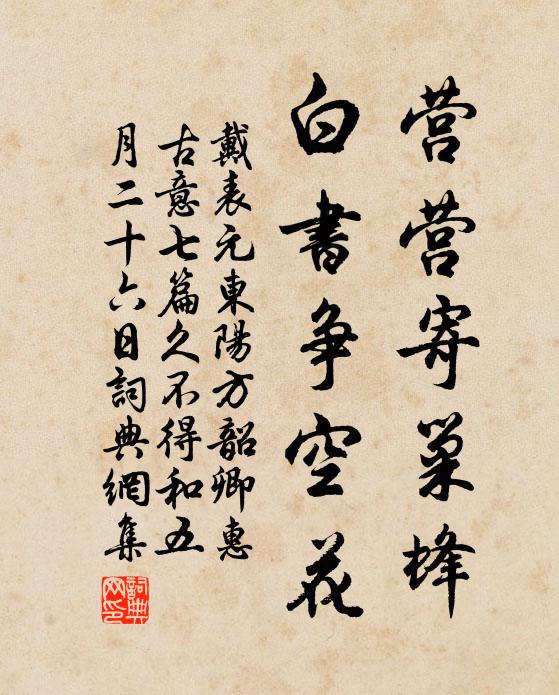 营营寄巢蜂
白书争空花
戴表元東陽方韶卿惠
古意七篇久不得和五
月二十六日詞典網集
詞典网印